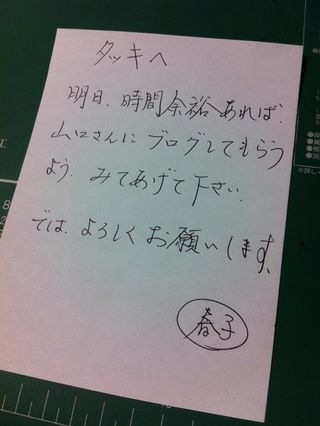 タッキへ
明日、時間余裕あれば、
山口さんにブログしてもらう
よう、みてあげて下さい。
では、よろしくお願いします。
春子
8